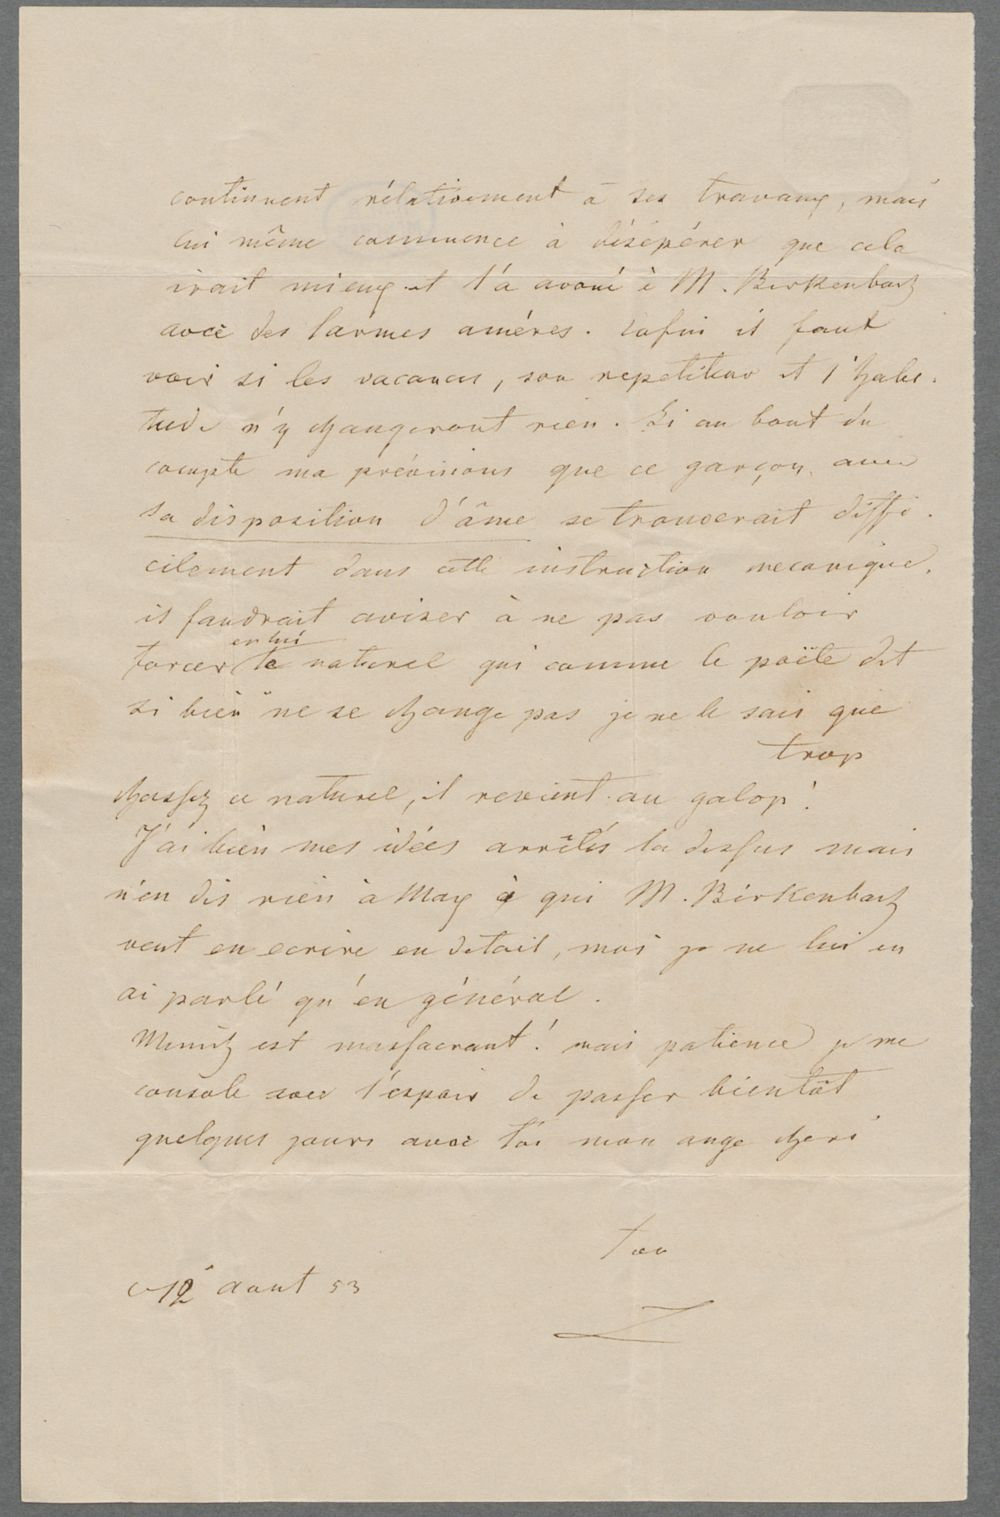 continuent rélativement à ses travaux, mais
lui même commence à désépérer que cela
irait mieux et l'a avoué à M. Birkenbach
avec des larmes améres. Enfin il faut
voir si les vacances, son repetiteur et l'habi-
tude n'y changeront rien. Si au bout du
compte ma prévisions que ce garçon avec
sa disposition d'âme se trouverait diffi-
cilement dans cette instruction mecanique,
il faudrait aviser à ne pas vouloir
en lui
forcer le naturel qui comme le poëte dit
si bien ne se change pas je ne le sais que
trop
chassez ce naturel, il revient au galop!
J'ai bien mes idées arrêtés la dessus mais
n'en dis rien à Max à qui M. Birkenbach
veut en ecrire en detail, moi je ne lui en
ai parlé qu'en général.
est massacrant! mais patience je me
console avec l'espoir de passer bientôt
quelques jours avec toi mon ange cheri
ton
L
12 aout 53